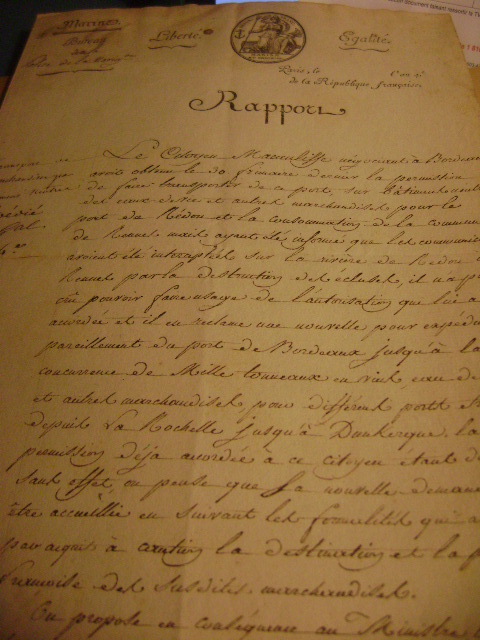 Marine
Bureau
Liberté
Egalité
Paris, le
l'an 4e
de la République française
Rapport
Le Citoyen negociant a Bordeaux
avoit obtenu le 30 frimaire dernier la permission
de faire transporter de ce port, sur bâtiment
des eaux de vie et autres marchandises pour le
port de Redon et la consommation de la commune
de Rennes mais ayant été informé que les communic
avoient été interceptés sur la riviere de Redon
Rennes par la destruction des écluses, il n'a p
cru pouvoir faire usage de l'autorisation que lui a
accordée et il en reclame une nouvelle pour expédier
pareillement du port de Bordeaux jusqu'à la
concurrence de Mille tonneaux en vins eau de
et autres marchandises pour différens ports
depuis La Rochelle jusqu'à Dunkerque. la
permission déja accordée à ce citoyen étant d
sans effet on pense que la nouvelle demande
être accueillie en suivant les formalités
par acquit à caution la destination et la p
françoise des susdites marchandises.
On propose en conséquence au Ministre